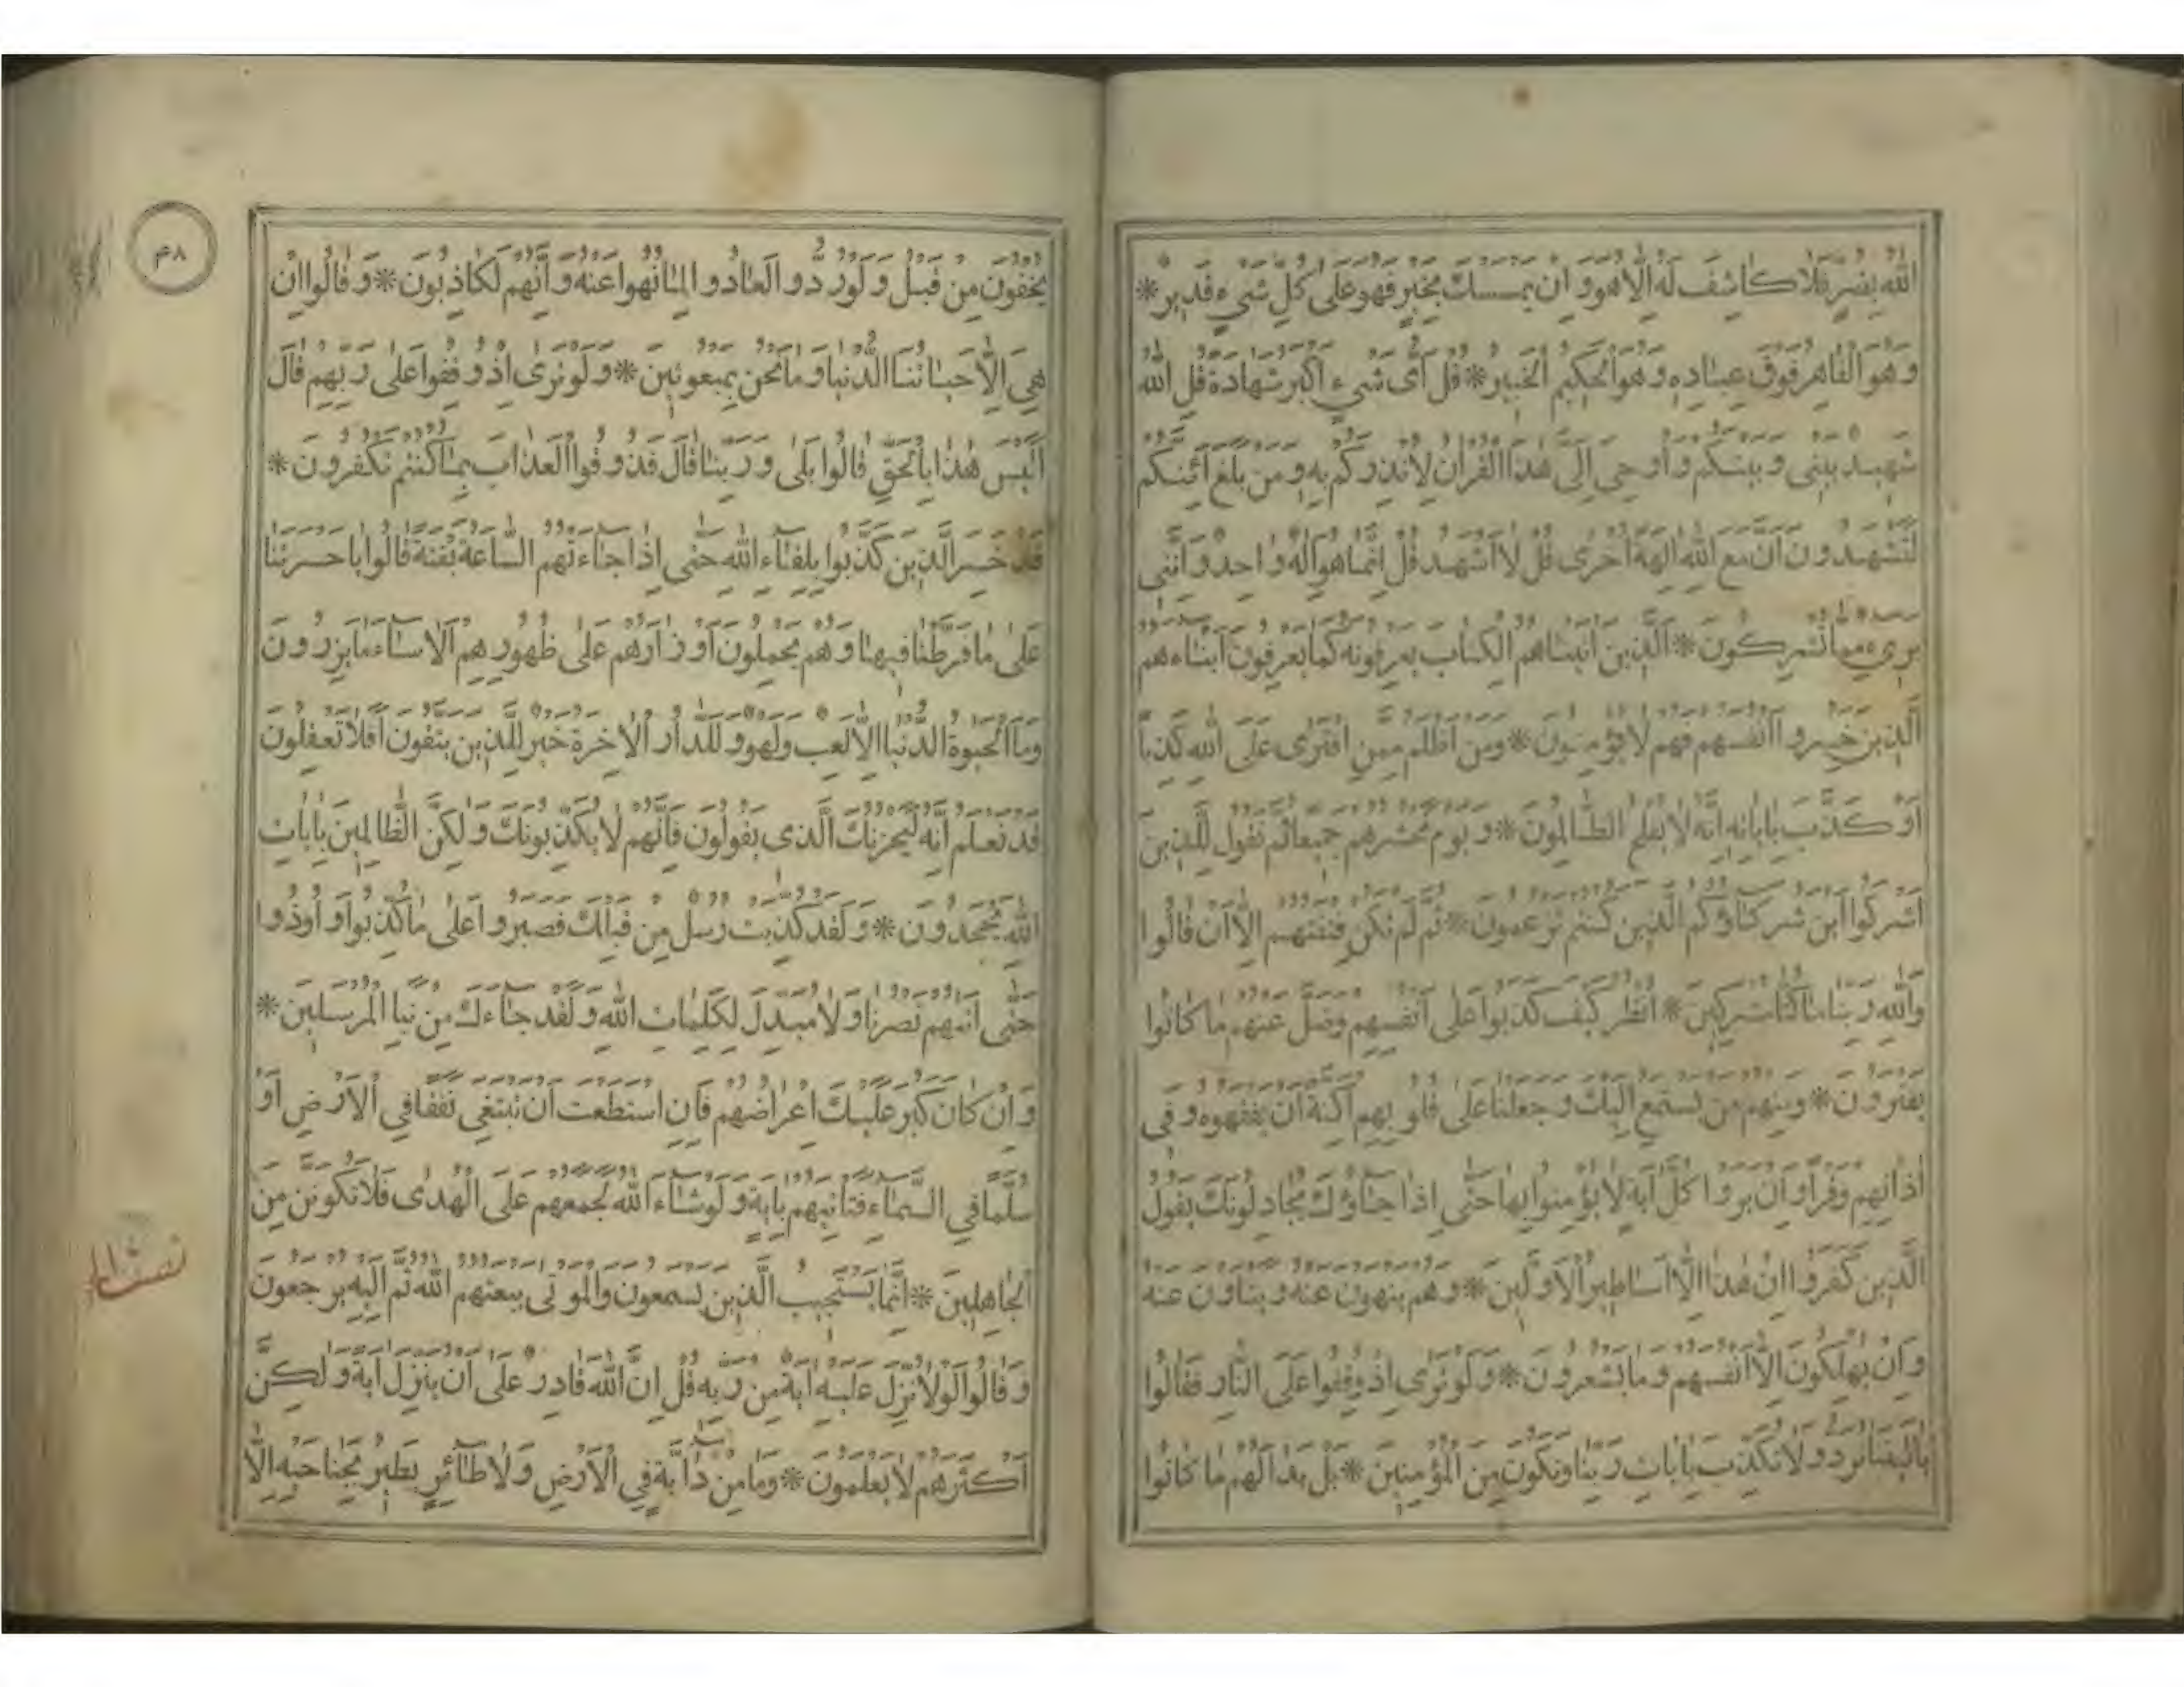 الله بضر فلا كاشف له الا هو وان يمسسك بخير فهو على كل شيء قدير *
وهو القاهر فوق عباده وهو الحكيم الخبير * قل اى شيء اكبر شهادة قل الله
شهيد بينى وبينكم واوحى الى هذا القران لانذركم به ومن بلغ ائنكم
لتشهدون ان مع الله الهة اخرى قل لا اشهد قل انما هو اله واحد واننى
برىء مما تشركون * الذين اتيناهم الكتاب يعرفونه كما يعرفون ابناءهم
الذين خسروا انفسهم فهم لا يؤمنون * ومن اظلم ممن افترى على الله كذبا
او كذب باياته انه لا يفلح الظالمون * ويوم نحشرهم جميعا ثم نقول للذين
اشركوا اين شركاؤكم الذين كنتم تزعمون * ثم لم تكن فتنتهم الا ان قالوا
والله ربنا ما كنا مشركين * انظر كيف كذبوا على انفسهم وضل عنهم ما كانوا
يفترون * ومنهم من يستمع اليك وجعلنا على قلوبهم اكنة ان يفقهوه وفى
اذانهم وقرا وان يروا كل اية لا يؤمنوا بها حتى اذا جاؤك يجادلونك يقول
الذين كفروا ان هذا الا اساطير الاولين * وهم ينهون عنه ويناون عنه
وان يهلكون الا انفسهم وما يشعرون * ولو ترى اذ وقفوا على النار فقالوا
ياليتنا نرد ولا نكذب بايات ربنا ونكون من المؤمنين * بل بدا لهم ما كانوا
يخفون من قبل ولو ردوا لعادوا لما نهوا عنه وانهم لكاذبون * وقالوا ان
هى الا حياتنا الدنيا وما نحن بمبعوثين * ولو ترى اذ وقفوا على ربهم قال
اليس هذا بالحق قالوا بلى وربنا قال فذوقوا العذاب بما كنتم تكفرون *
قد خسر الذين كذبوا بلقاء الله حتى اذا جاءتهم الساعة بغتة قالوا ياحسرتنا
على ما فرطنا فيها وهم يحملون اوزارهم على ظهورهم الا ساء ما يزرون
وما الحيوة الدنيا الا لعب ولهو وللدار الاخرة خير للذين يتقون افلا تعقلون
قد نعلم انه ليحزنك الذى يقولون فانهم لا يكذبونك ولكن الظالمين بايات
الله يجحدون * ولقد كذبت رسل من قبلك فصبروا على ما كذبوا واوذوا
حتى اتيهم نصرنا ولا مبدل لكلمات الله ولقد جاءك من نبا المرسلين *
وان كان كبر عليك اعراضهم فان استطعت ان تبتغى نفقا فى الارض او
سلما فى السماء فتاتيهم باية ولو شاء الله لجمعهم على الهدى فلا تكونن من
الجاهلين * انما يستجيب الذين يسمعون والموتى يبعثهم الله ثم اليه يرجعون
وقالوا لولا نزل عليه اية من ربه قل ان الله قادر على ان ينزل اية ولكن
اكثرهم لا يعلمون * وما من دابة فى الارض ولا طائر يطير بجناحيه الا